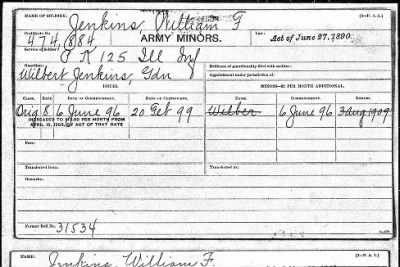 NAME OF SOLDIER: Jenkins, William F
Certificate No. 474,884 ARMY MINORS. Act of June 27, 1890.
Service of Soldier: K 125 Ill Inf
Guardian: Wilbert Jenkins, Gdn
Evidence of guardianship filed with mother:
Appointment under jurisdiction of:
ISSUES. MINORS—$2 PER MONTH ADDITIONAL.
CLASS. RATE. DATE OF COMMENCEMENT. DATE OF CERTIFICATE. NAME. COMMENCEMENT.
Orig 8 6 June 96 20 Oct 99 Wilber 6 June 96 3 Aug 1909
INCREASED TO $12.00 PER MONTH FROM
APRIL 19, 1908, BY ACT OF THAT DATE
Transferred from: Transferred to:
Remarks:
Former Roll No. 31534
NAME: Jenkins, William F.